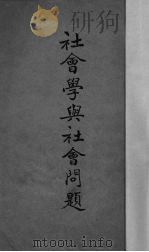 研狗
社會學與社會問題
mtoou.info yandg.com